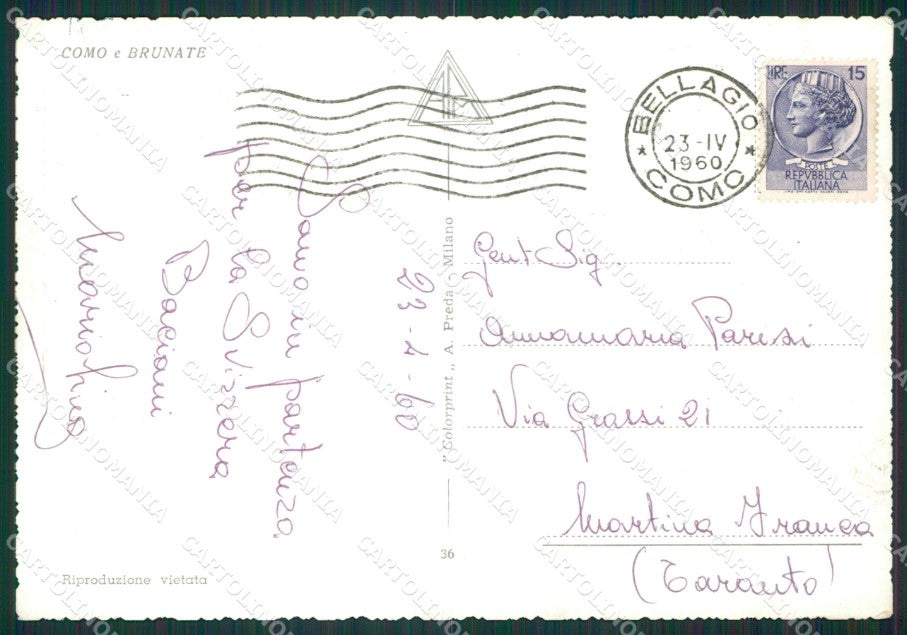 COMO e BRUNATE
BELLAGIO
23-IV
1960
COMO
LIRE 15
POSTE
REPVBBLICA
ITALIANA
23-4-60
Sono in partenza
per la Svizzera
Bacioni
"Colorprint„ A. Preda - Milano
Gent Sig.
Annamaria Parisi
Via Grassi 21
Martina Franca
(Taranto)
36
Riproduzione vietata
CARTOLINOMANIA